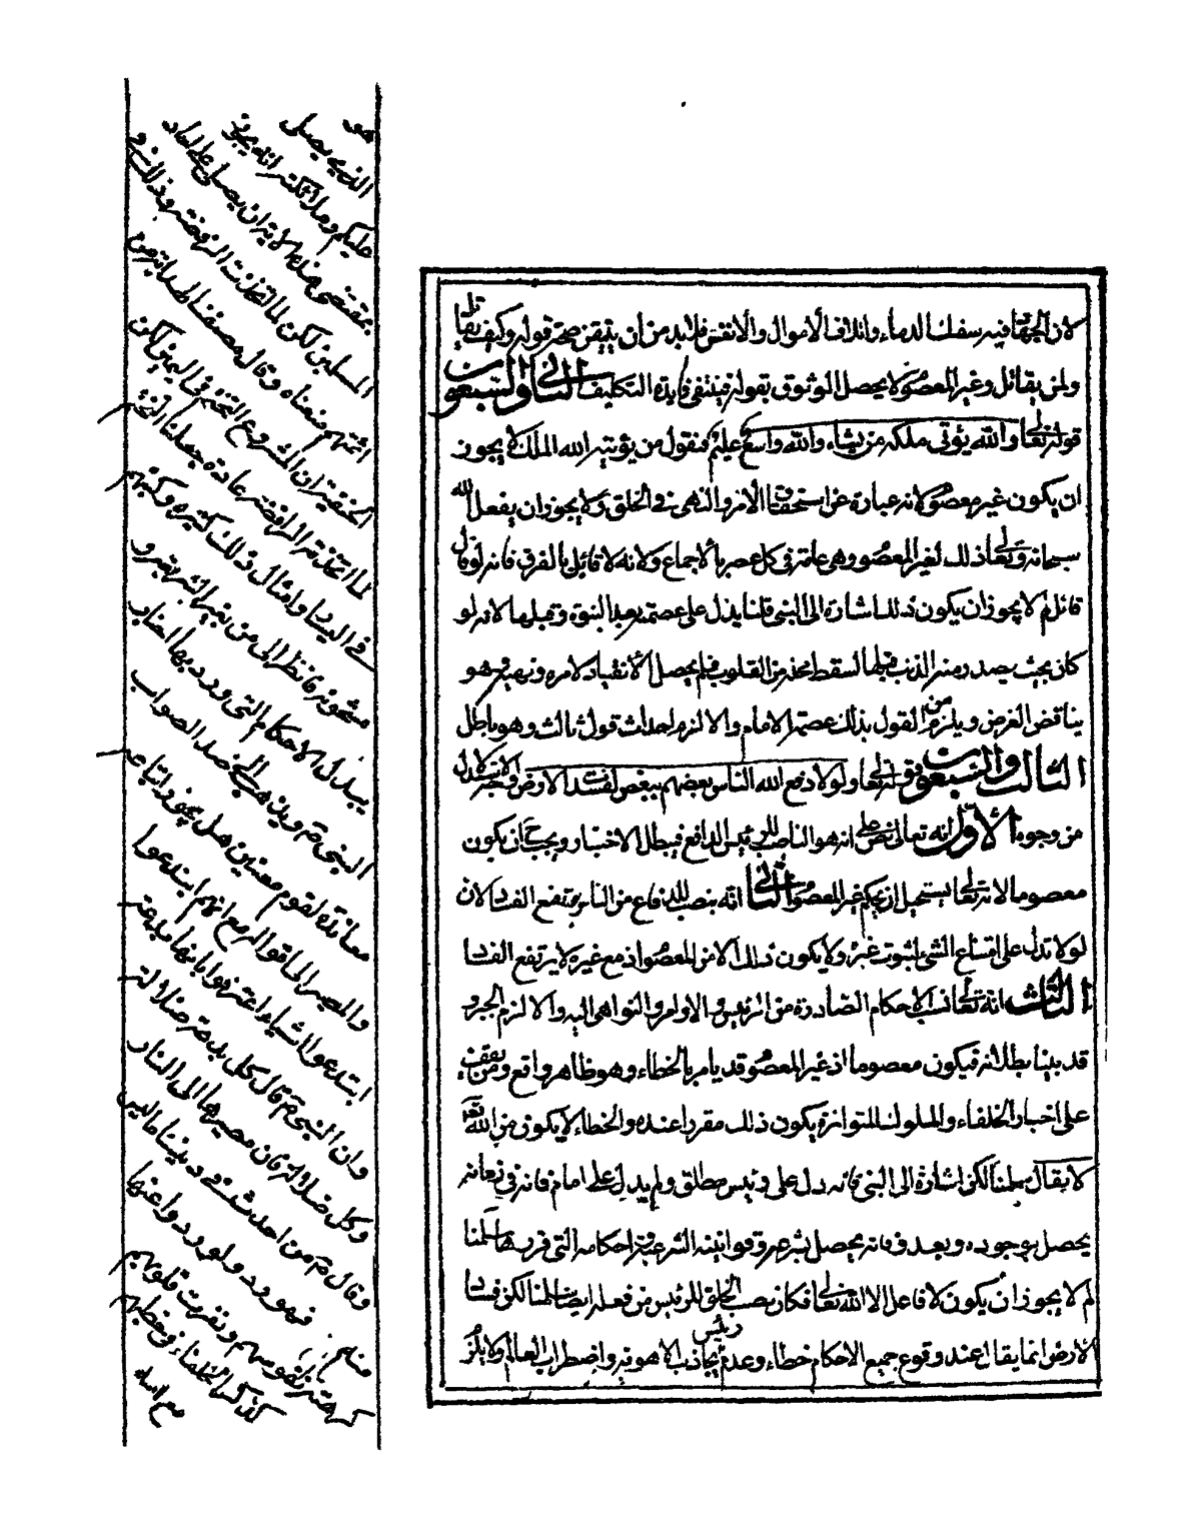 لان الجهاد فيه سفك الدماء واتلاف الاموال والانفس فلا بد من ان يتيقن صحة قوله وكيف يقاتل
ولمن يقاتل وغير المعصوم لا يحصل الوثوق بقوله فينتفي فايدة التكليف الثاني والسبعون
قوله تعالى والله يؤتي ملكه من يشاء والله واسع عليم فنقول من يؤتيه الله الملك لا يجوز
ان يكون غير معصوم لانه عبارة عن استحقاق الامر والنهي في الخلق ولا يجوز ان يفعل الله
سبحانه وتعالى ذلك لغير المعصوم وهي عامة في كل عصر بالاجماع ولانه لا قائل بالفرق فانه لو قال
قائل لم لا يجوز ان يكون ذلك اشارة الى النبي قلنا يدل على عصمته بعد النبوة وقبلها لانه لو
كان بحيث يصدر منه الذنب قبلها لسقط محله من القلوب فلم يحصل الانقياد لامره ونهيه وهو
يناقض الغرض ويلزم من القول بذلك عصمة الامام والا لزم احداث قول ثالث وهو باطل
الثالث والسبعون قوله تعالى ولولا دفع الله الناس بعضهم ببعض لفسدت الارض وجه الاستدلال
من وجوه الاول انه تعالى نص على انه هو الناصب للرئيس الدافع فيبطل الاختيار ويجب ان يكون
معصوما لانه تعالى يستحيل ان يحكم غير المعصوم الثاني انه بنصب للدفاع من الناس يرتفع الفساد لان
لولا تدل على امتناع الشئ لثبوت غيره ولا يكون ذلك الا من المعصوم اذ مع غيره لا يرتفع الفساد
الثالث انه تعالى نسب الاحكام الصادرة من الرئيس والاوامر والنواهي اليه والا لزم الجبر و
قد بينا بطلانه فيكون معصوما اذ غير المعصوم قد يامر بالخطاء وهو ظاهر واقع ومن يقف
على اخبار الخلفاء والملوك المتواترة يكون ذلك مقررا عنده والخطاء لا يكون من الله تعالى
لا يقال سلمنا لكن اشارة الى النبي فانه دل على رئيس مطلق ولم يدل على امام فانه في زمانه
يحصل بوجوده وبعد وفاته يحصل بشرعه وقوانينه الشرعية واحكامه التي قررها سلمنا
لم لا يجوز ان يكون لا فاعل الا الله تعالى فكان نصب الخلق للرئيس من فعله ايضا سلمنا لكن فساد
الارض انما يقال عند وقوع جميع الاحكام خطاء وعدم رئيس يجاذب الاهوية واضطراب العالم ولا يلزم
هو
الذي يصلي
عليكم وملائكته انه يجوز
بمقتضى هذه الاية ان يصلى على احاد
المسلمين لكن لما اتخذت الرافضة ذلك في
ائمتهم منعناه وقال مصنف الهداية من
الحنفية ان المشروع التختم في اليمين لكن
لما اتخذته الرافضة عادة جعلنا التختم
في اليسار وامثال ذلك كثيرة وكتبهم
مشحونة فانظر الى من يغير الشريعة و
يبدل الاحكام التي ورد بها احاديث
النبي ص ويذهب الى ضد الصواب
معاندة لقوم معينين هل يجوز اتباعه
والمصير الى اقواله مع انهم ابتدعوا
ابتدعوا اشياء اعترفوا بانها بدعة
وان النبي ص قال كل بدعة ضلالة
وكل ضلالة فان مصيرها الى النار
وقال ص من احدث في ديننا ما ليس
منه فهو رد ولو ردوا عنها
كرهته نفوسهم ونفرت قلوبهم
كذكر الخلفاء في خطبهم
مع انه